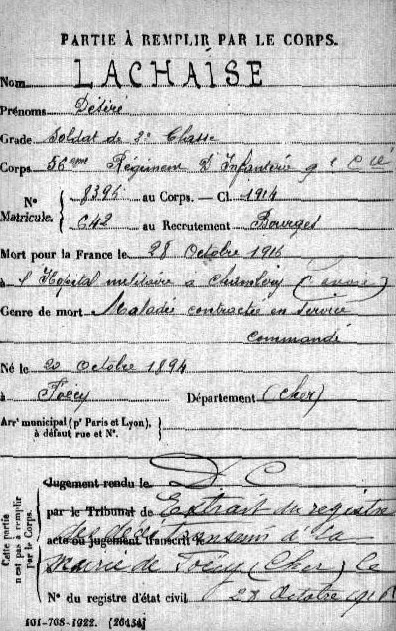 PARTIE À REMPLIR PAR LE CORPS.
Nom LACHAISE
Prénoms Désiré
Grade Soldat de 2e Classe
Corps 56eme Régiment D'Infanterie 9e Cie
N° Matricule. { 8395 au Corps. — Cl. 1914
642 au Recrutement Bourges
Mort pour la France le 28 Octobre 1916
à l'Hopital militaire à Chambéry (Savoie)
Genre de mort Maladie contractée en service
commandé
Né le 20 Octobre 1894
à Foëcy Département (Cher)
Arrt municipal (pr Paris et Lyon), à défaut rue et N°. }
Cette partie n'est pas à remplir par le Corps.
Jugement rendu le D. C
par le Tribunal de Extrait du registre
acte ou jugement transcrit le à la
mairie de Foëcy (Cher) le
N° du registre d'état civil 28 Octobre 1916
101-708-1922. [26434]